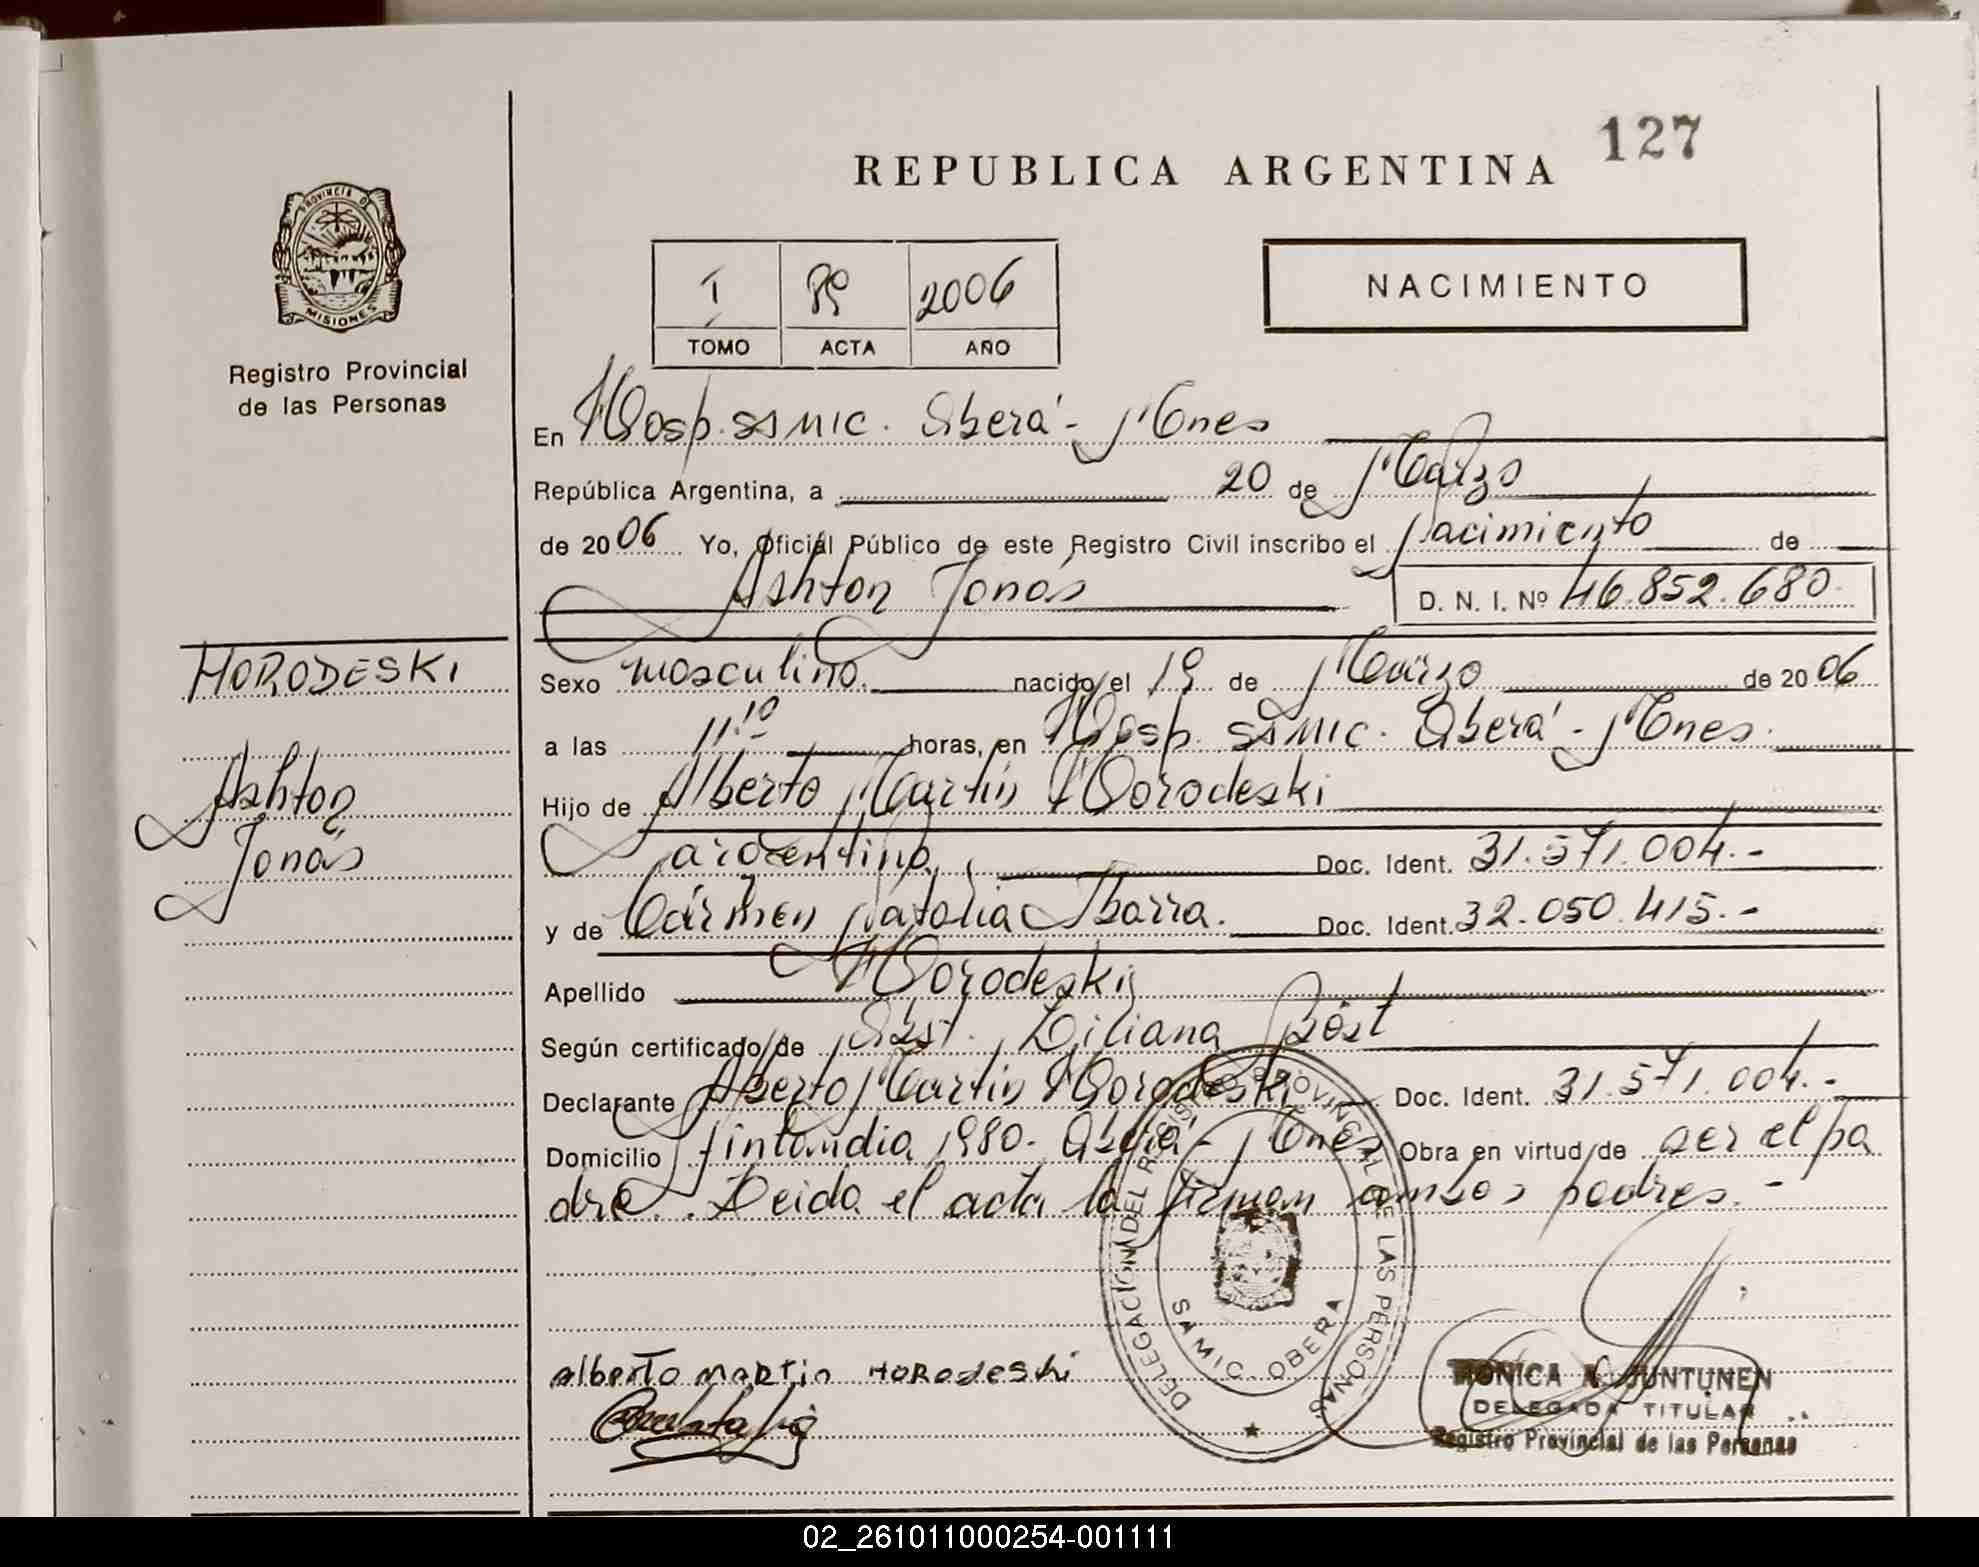 127
REPUBLICA ARGENTINA
PROVINCIA DE MISIONES
Registro Provincial
de las Personas
I 89 2006
TOMO ACTA AÑO
NACIMIENTO
En Hosp. SAMIC. Oberá - Mnes
República Argentina, a 20 de Marzo
de 2006 Yo, Oficial Público de este Registro Civil inscribo el Nacimiento de
Ashton Jonás D. N. I. Nº 46.852.680.
HORODESKI
Ashton
Jonás
Sexo masculino. nacido el 19 de Marzo de 2006
a las 11:10 horas, en Hosp. SAMIC. Oberá - Mnes.
Hijo de Alberto Martin Horodeski
argentino. Doc. Ident. 31.571.004.-
y de Cármen Natalia Ibarra. Doc. Ident. 32.050.415.-
Apellido Horodeski
Según certificado de Obst. Liliana Bóst
Declarante Alberto Martin Horodeski Doc. Ident. 31.571.004.-
Domicilio finlandia 1980- Oberá - Mnes Obra en virtud de ser el pa
dre. Leida el acta la firman ambos padres.-
DELEGACION DEL REGISTRO PROVINCIAL DE LAS PERSONAS
SAMIC. OBERA
alberto martin Horodeski
MONICA A. JUNTUNEN
DELEGADA TITULAR
Registro Provincial de las Personas
02_261011000254-001111